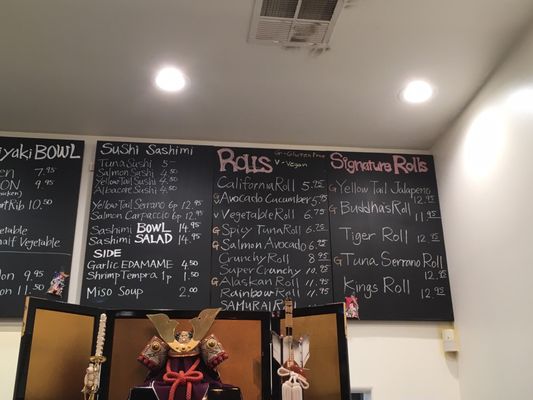 iyaki BOWL
7.95
9.95
Rib 10.50
getable
half Vegetable
on 9.95
on 11.50
Sushi Sashimi
Tuna Sushi 5.-
Salmon Sushi 4.50
Yellow Tail Sushi 4.50
Albacore Sushi 4.50
Yellow Tail Serrano 6p 12.95
Salmon Carpaccio 6p 12.95
Sashimi BOWL 14.95
Sashimi SALAD 14.95
SIDE
Garlic EDAMAME 4.50
Shrimp Tempra 1p 1.50
Miso Soup 2.00
Rolls
G-Gluten Free
V-Vegan
California Roll 5.95
G Avocado Cucumber 5.95
V Vegetable Roll 6.75
G Spicy Tuna Roll 6.25
G Salmon Avocado 6.25
Crunchy Roll 8.95
Super Crunchy 10.95
G Alaskan Roll 11.95
Rainbow Roll 11.95
SAMURAI Roll
Signature Rolls
G Yellow Tail Jalapeno
12.95
G Buddha's Roll
11.95
Tiger Roll 12.95
G Tuna Serrano Roll
12.95
Kings Roll 12.95